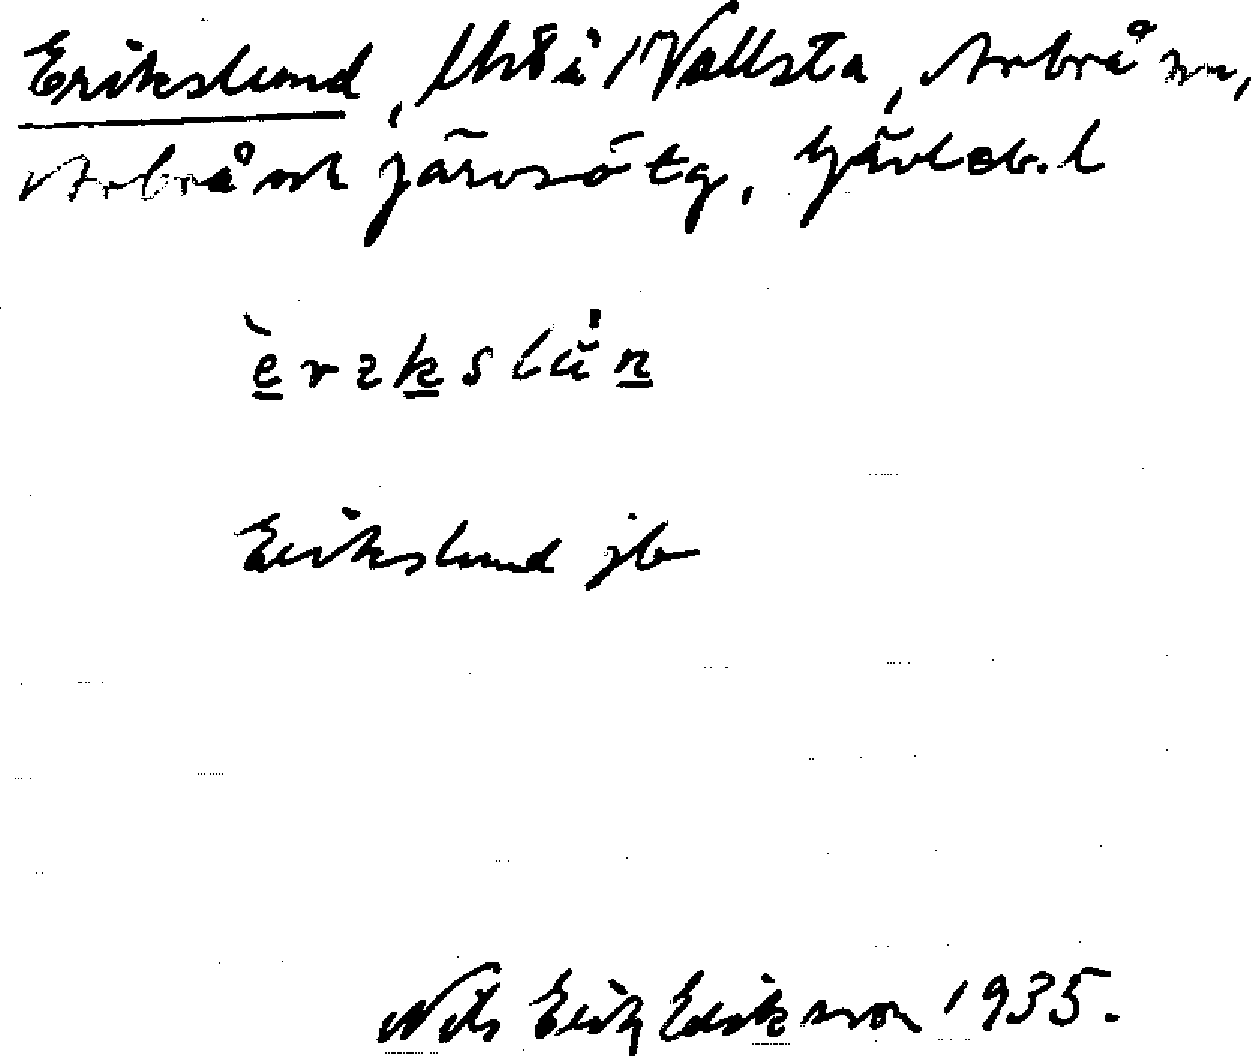 Erikslund, Uhr8 i Vallsta, Arbrå sn,
Arbrå och Järvsö tg, Gävleb. l
èrikslŭ'n
Erikslund jb
Nils Erik Eriksson 1935.